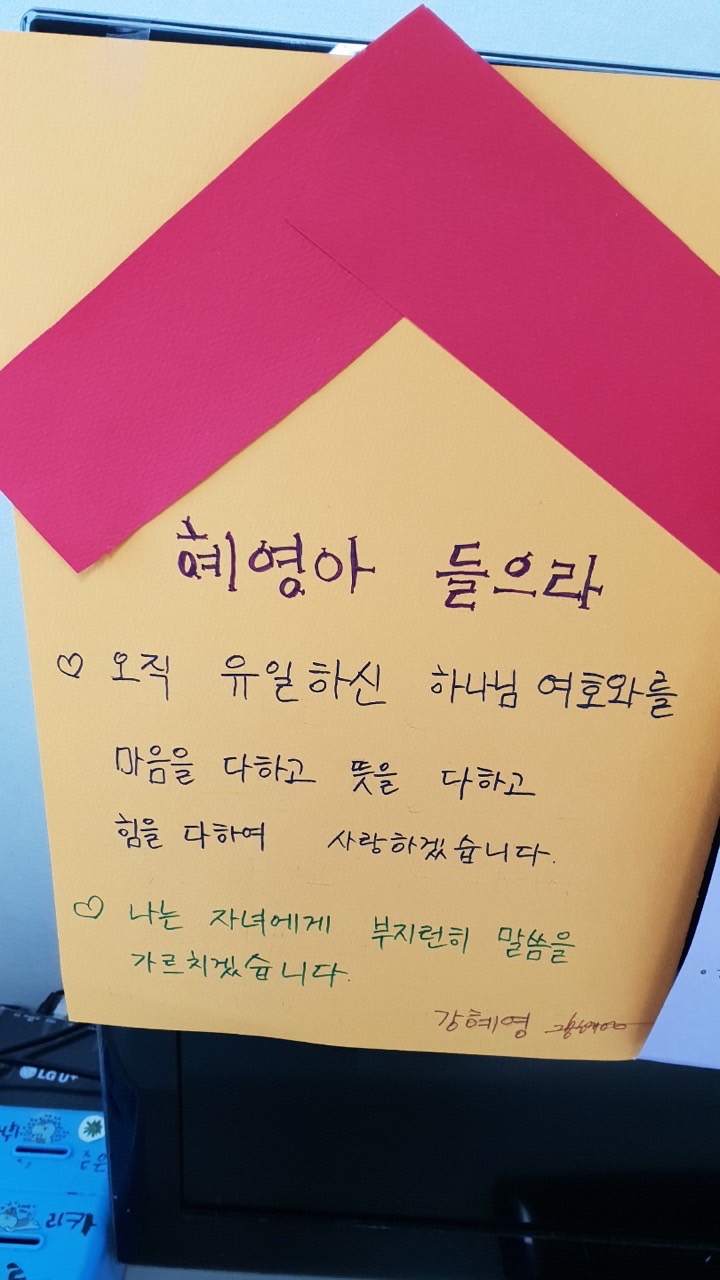 혜영아 들으라
♡ 오직 유일하신 하나님 여호와를
마음을 다하고 뜻을 다하고
힘을 다하여 사랑하겠습니다.
♡ 나는 자녀에게 부지런히 말씀을
가르치겠습니다.
강혜영
LG U+
리카